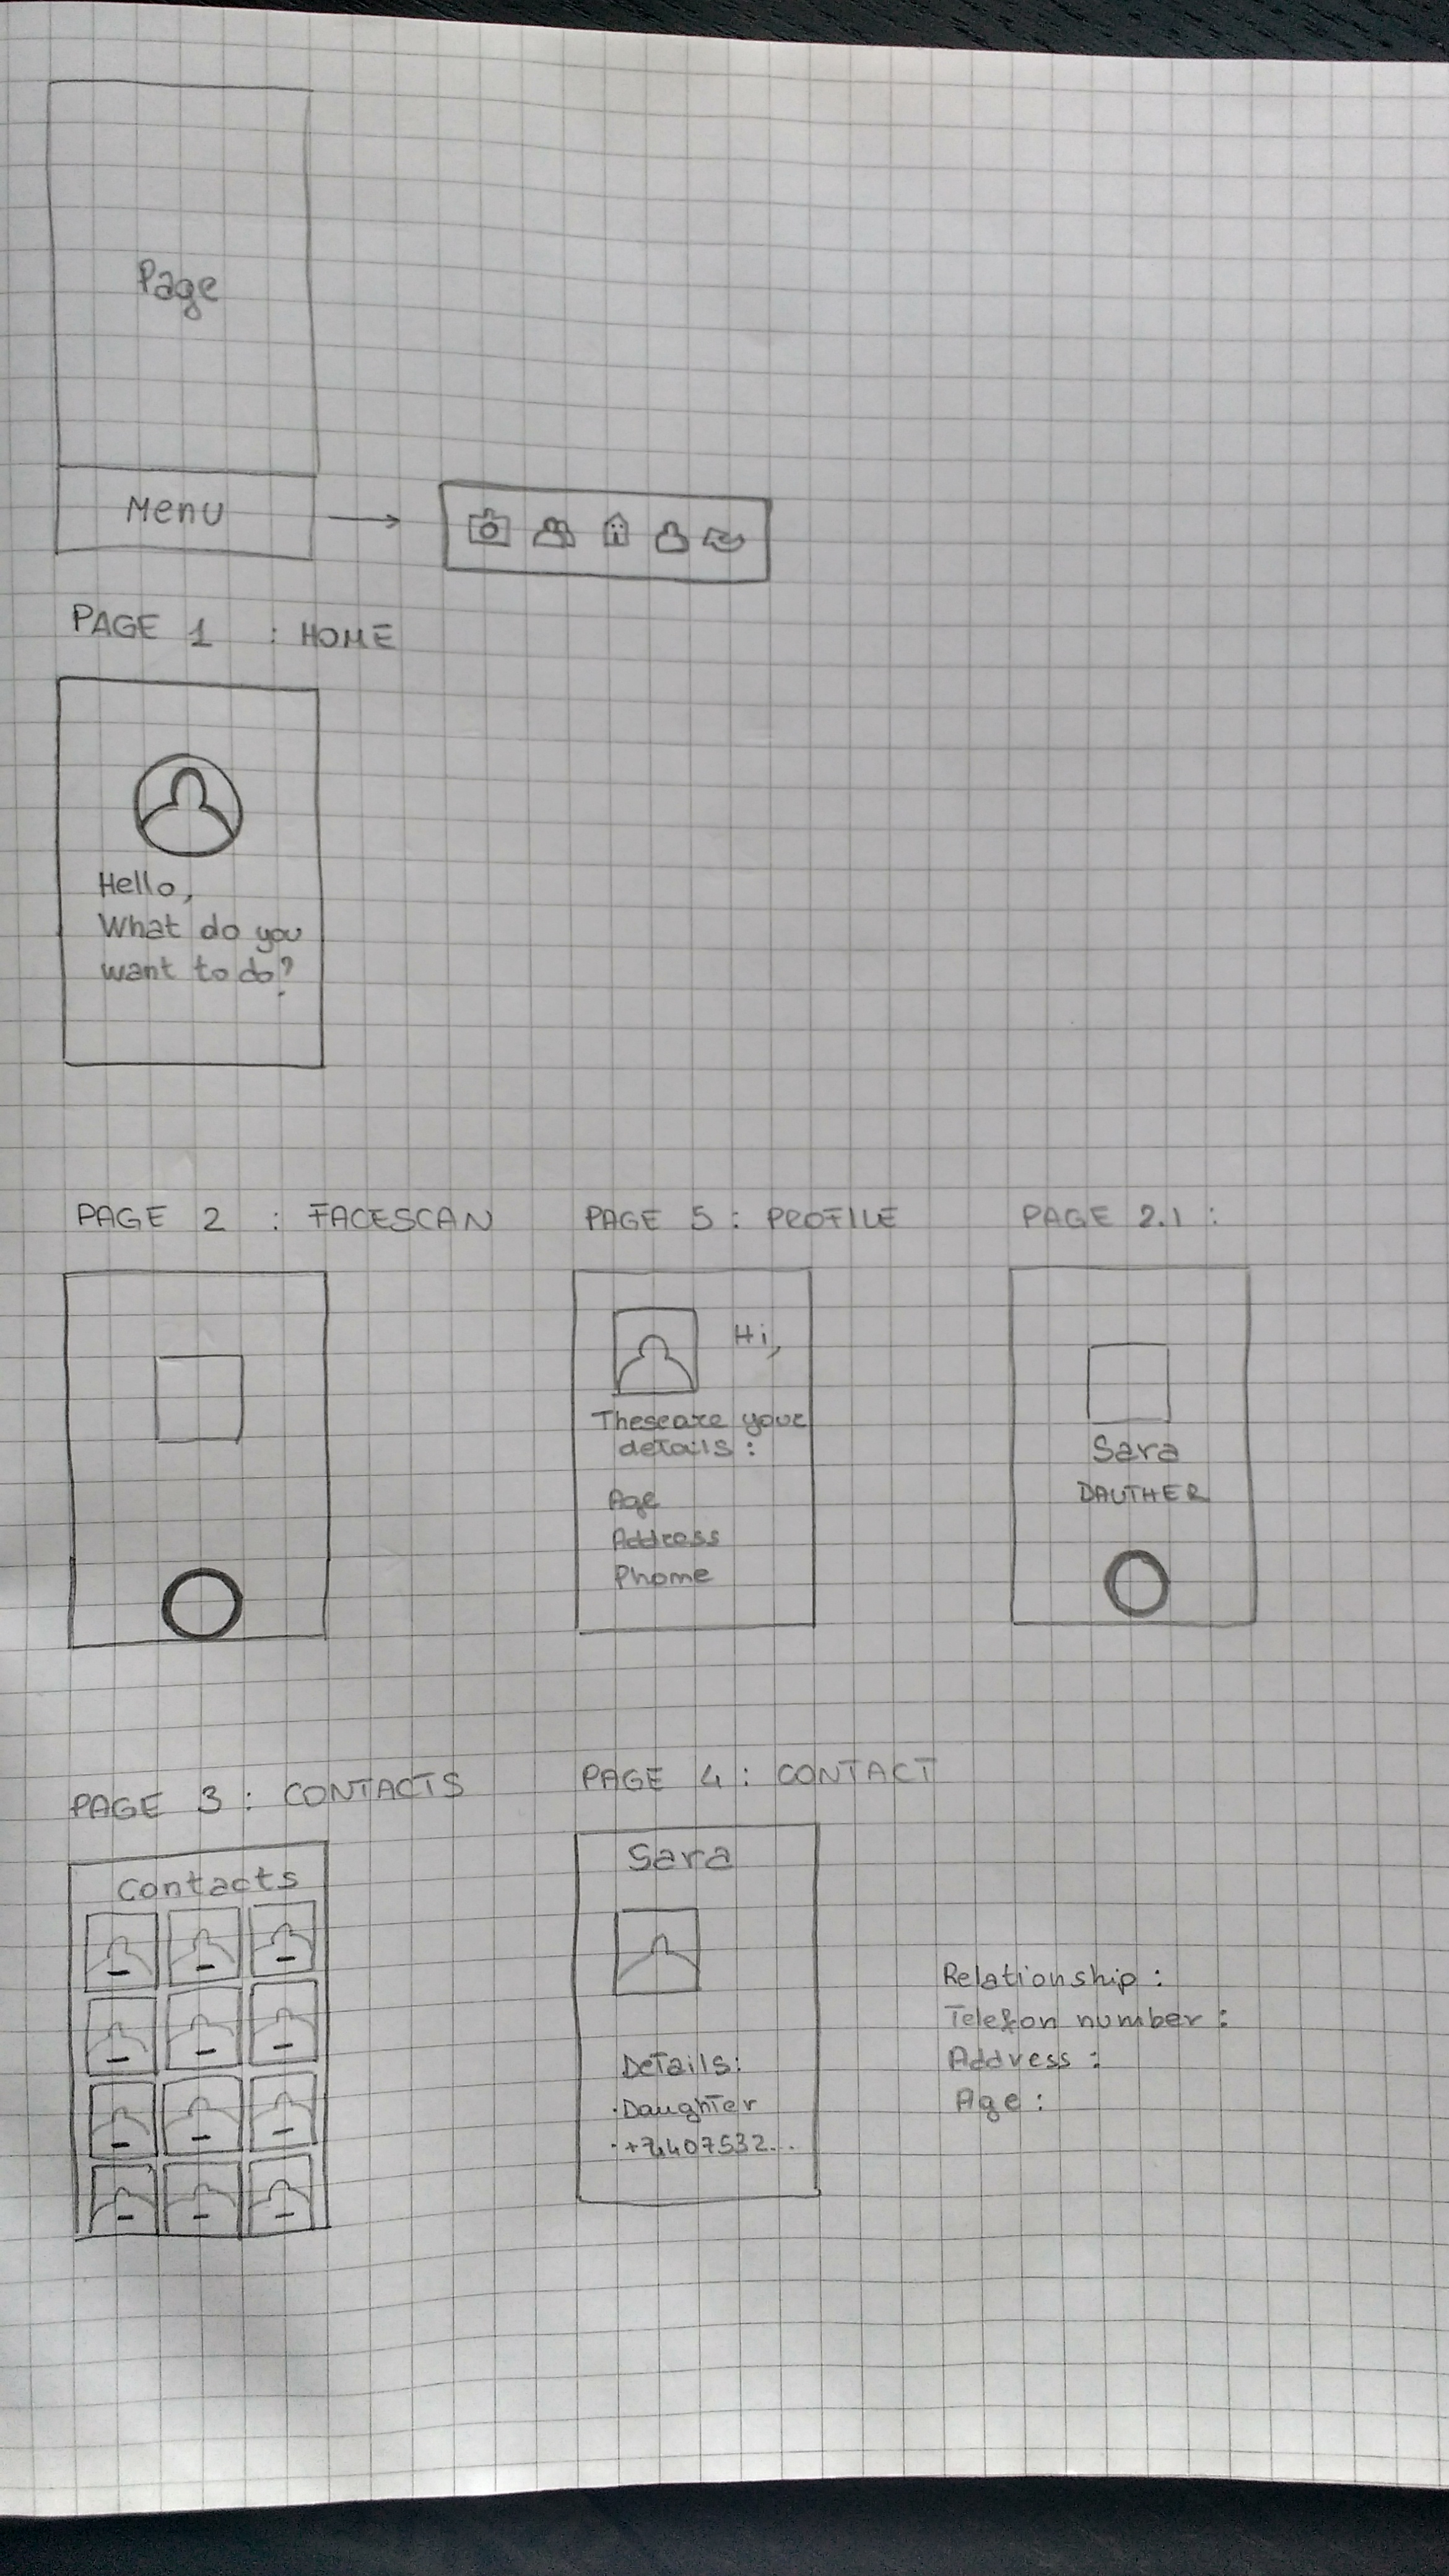 Page
Menu
PAGE 1 : HOME
Hello,
What do you
want to do?
PAGE 2 : FACESCAN
PAGE 5 : PROFILE
Hi,
These are your
details :
Age
Address
Phome
PAGE 2.1 :
Sara
DAUTHER
PAGE 3 : CONTACTS
Contacts
PAGE 4 : CONTACT
Sara
Details:
·Daughter
Relationship :
Telefon number :
Address :
Age :